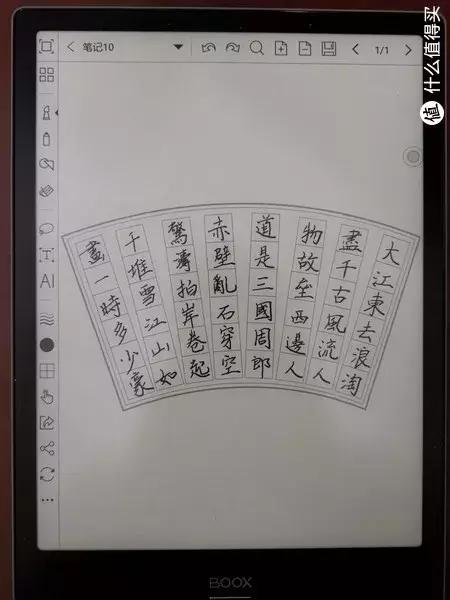 笔记10
1/1
值 什么值得买
T
AI
大江東去浪淘
盡千古風流人
物故垒西邊人
道是三國周郎
赤壁亂石穿空
驚濤拍岸卷起
千堆雪江山如
畫一時多少豪
BOOX